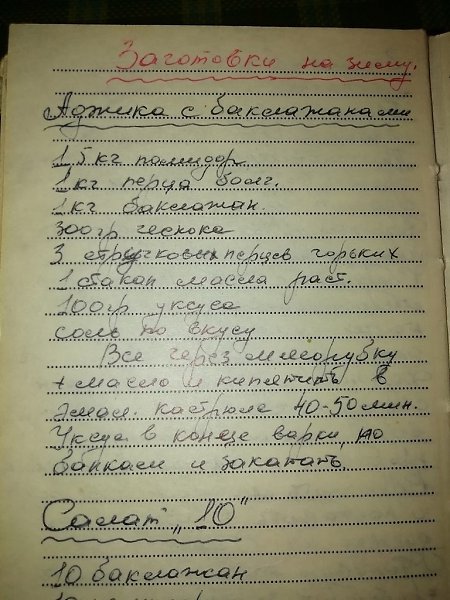 Заготовки на зиму.
Аджика с баклажанами
1,5 кг помидор
1 кг перца болг.
1 кг баклажан.
300 гр чеснока
3 стручковых перцев горьких
1 стакан масла раст.
100 гр уксуса
соль по вкусу
Все через мясорубку
+ масло и кипятить в
эмал. кастрюле 40-50 мин.
Уксус в конце варки, по
банкам и закатать
Салат „10"
10 баклажан
10